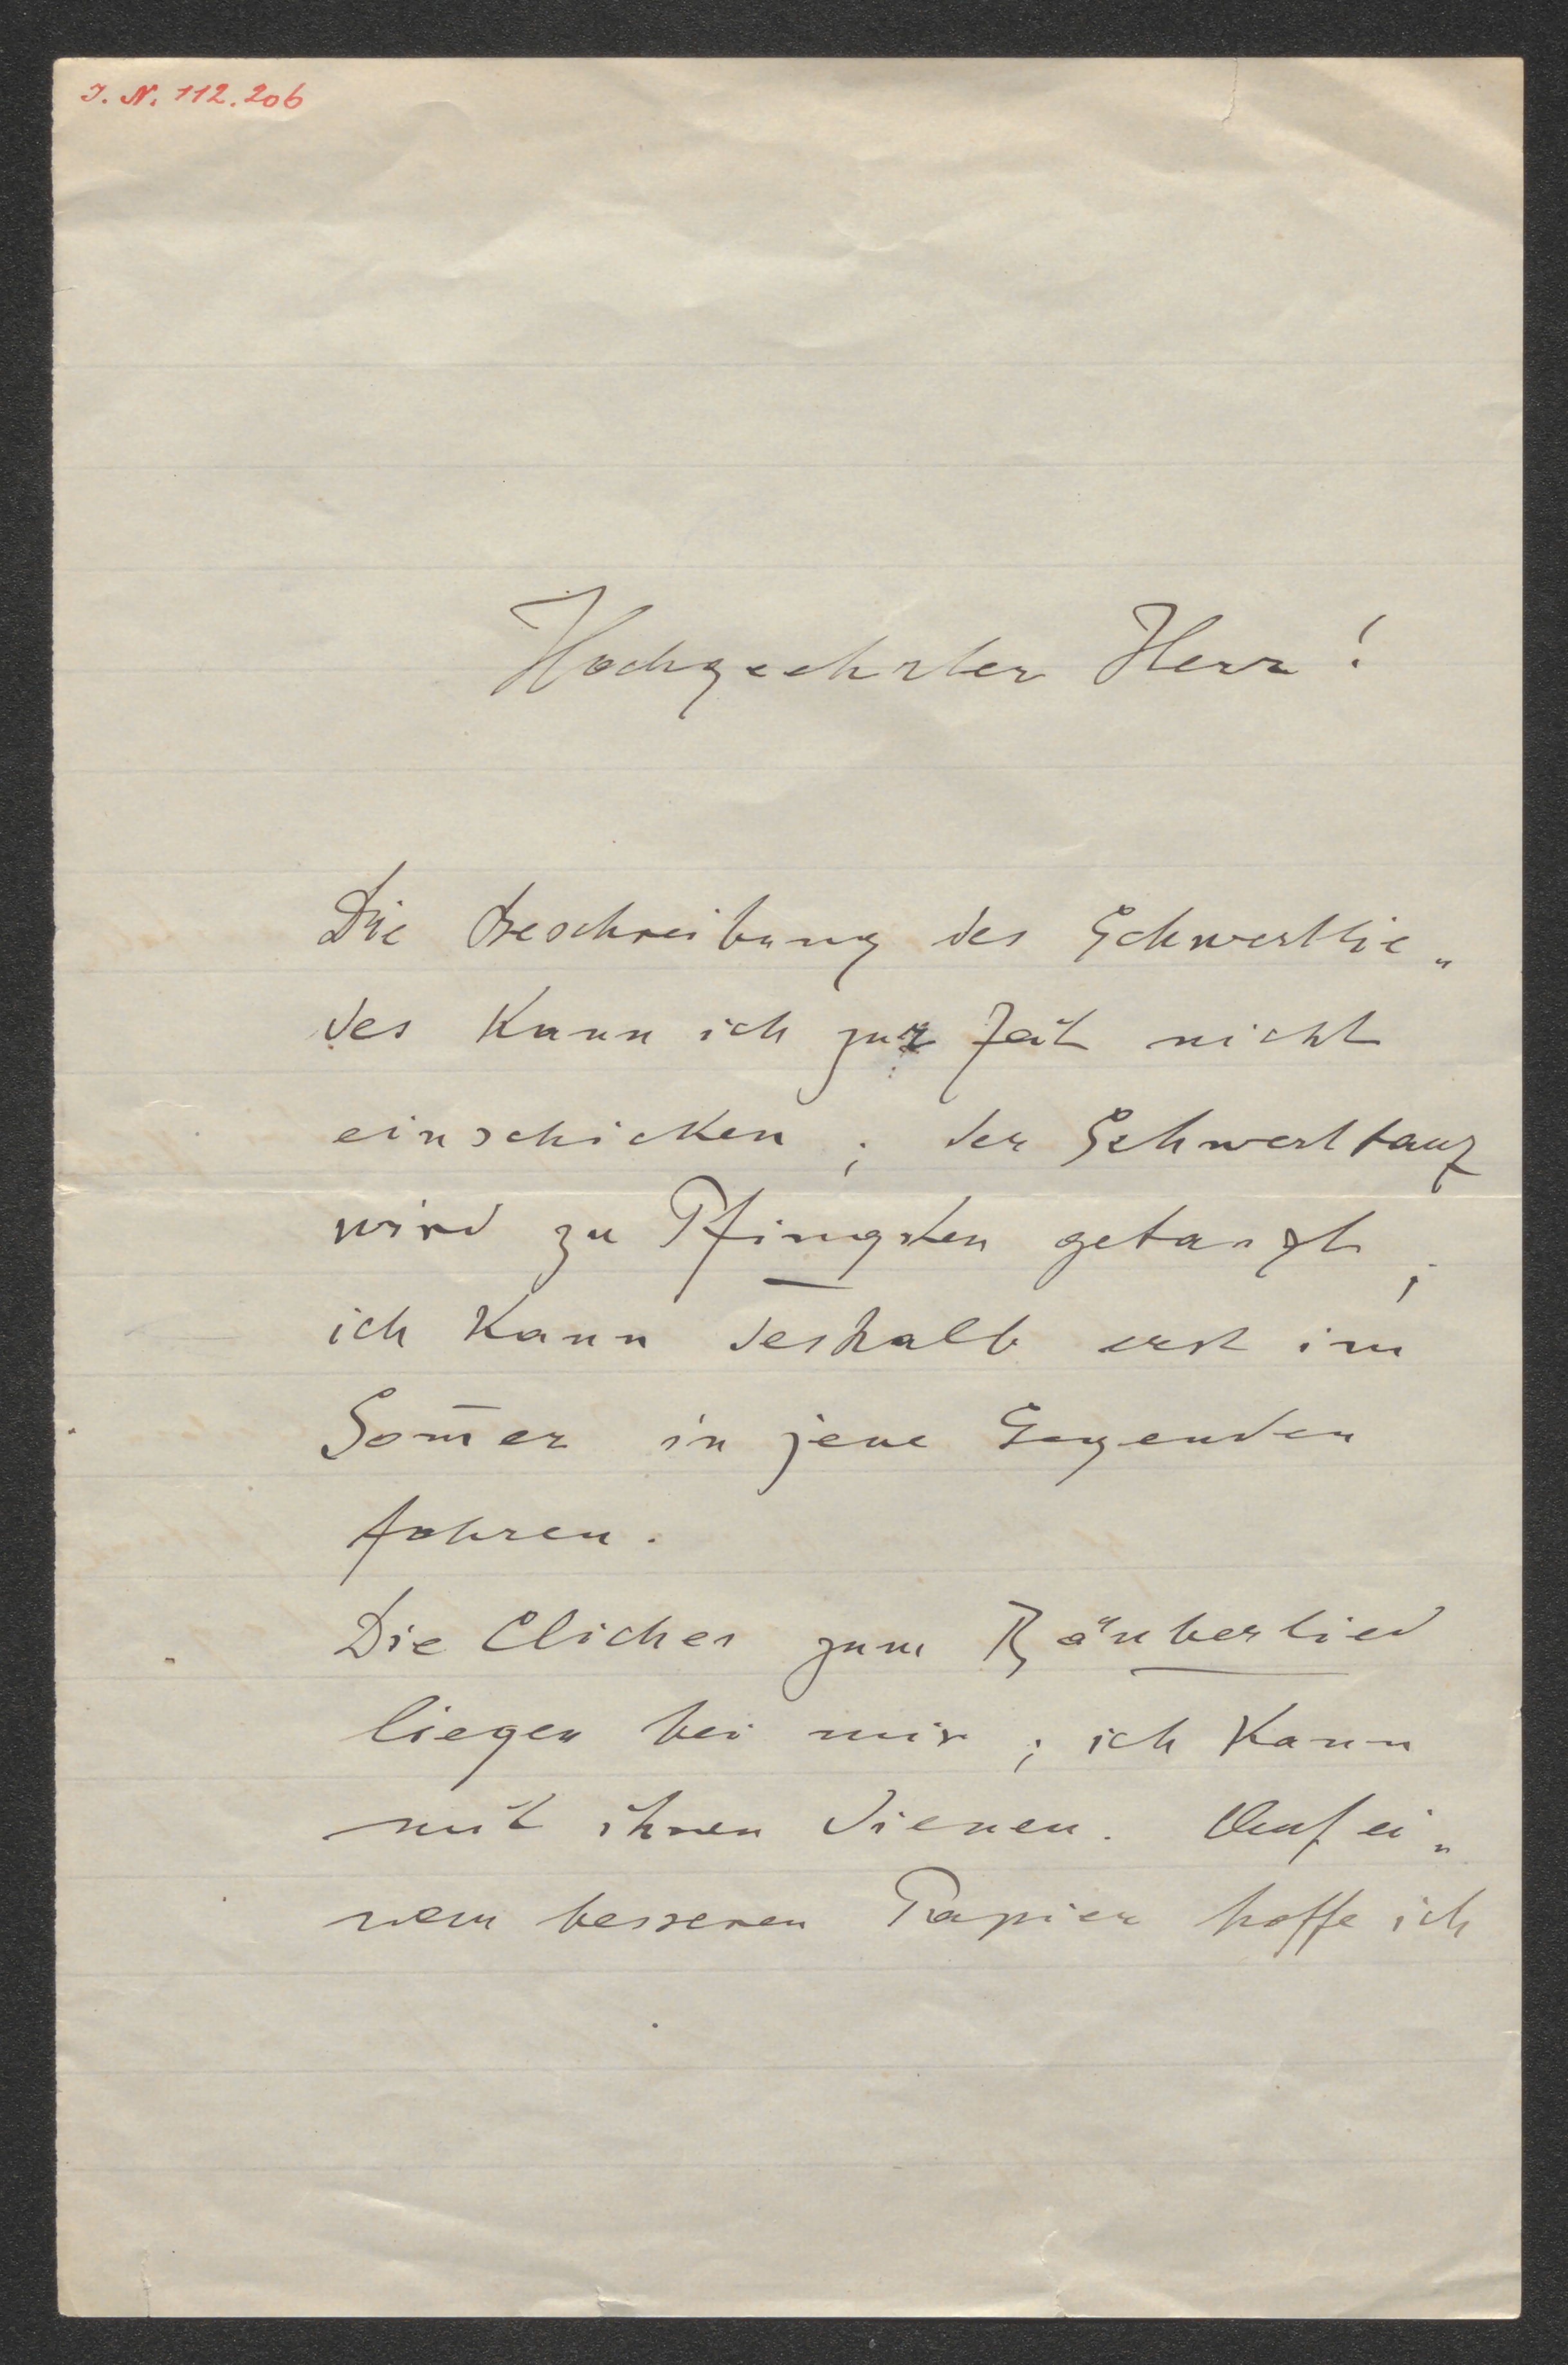 J. N. 112.206
Hochgeehrter Herr!
Die Beschreibung des Schwertlie„
des kann ich zur Zeit nicht
einschicken; der Schwerttanz
wird zu Pfingsten getanzt;
ich kann deshalb erst im
Som̄er in jene Gegenden
fahren.
Die Cliches zum Räuberlied
liegen bei mir; ich kann
mit ihnen dienen. Auf ei„
nem besseren Papier hoffe ich